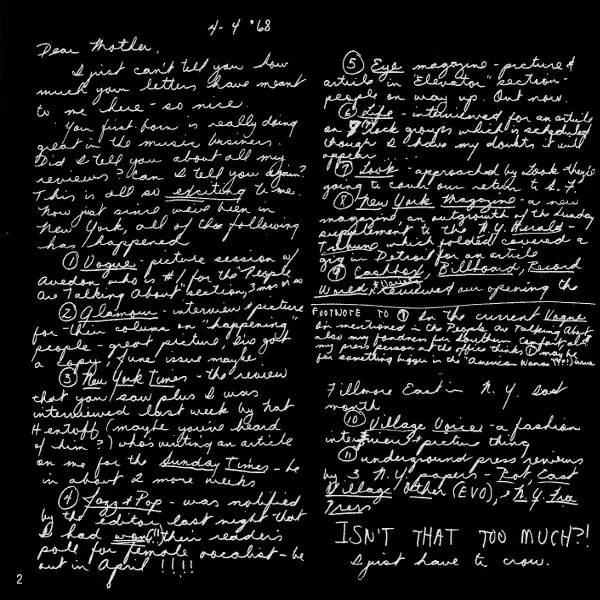 4-4 '68
Dear Mother,
I just can't tell you how
much your letters have meant
to me here - so nice.
Your first born is really doing
great in the music business.
Did I tell you about all my
reviews? Can I tell you again?
This is all so exciting to me.
Now just since we've been in
New York, all of the following
has happened
① Vogue - picture session w/
Avedon who is #1 for the "People
Are Talking About" section, 3 mos or so
② Glamour - interview & picture
for their column on "happening"
people - great picture, I've got
a copy, June issue maybe
③ New York Times - the review
that you saw plus I was
interviewed last week by Nat
Hentoff (maybe you've heard
of him?) who's writing an article
on me for the Sunday Times - be
in about 2 more weeks
④ Jazz & Pop - was notified
by the editor last night that
I had won!!! their readers
poll for female vocalist - be
out in April !!!!
2
⑤ Eye magazine - picture &
article in "Elevator" section -
people on way up. Out now.
⑥ Life - interviewed for an article
on Rock groups which is scheduled
though I have my doubts it will
appear...
⑦ Look - approached by Look they're
going to cover our return to S.F.
⑧ New York Magazine - a new
magazine an outgrowth of the Sunday
supplement to the N.Y. Herald-
Tribune which folded covered a
gig in Detroit for an article
⑨ Cashbox, Billboard, Record
World, reviewed our opening the
FOOTNOTE TO ① In the current Vogue
I'm mentioned in the People Are Talking About
also my fondness for Southern Comfort and
my press person at the office thinks ① may be
for something bigger in the "American Woman (??!) issue
Fillmore East in N.Y. last
month
⑩ Village Voice - a fashion
interview & picture thing
⑪ underground press reviews
by 3 N.Y. papers - Rat, East
Village Other (EVO), & N.Y. Free
Press
ISN'T THAT TOO MUCH?!
I just have to crow.